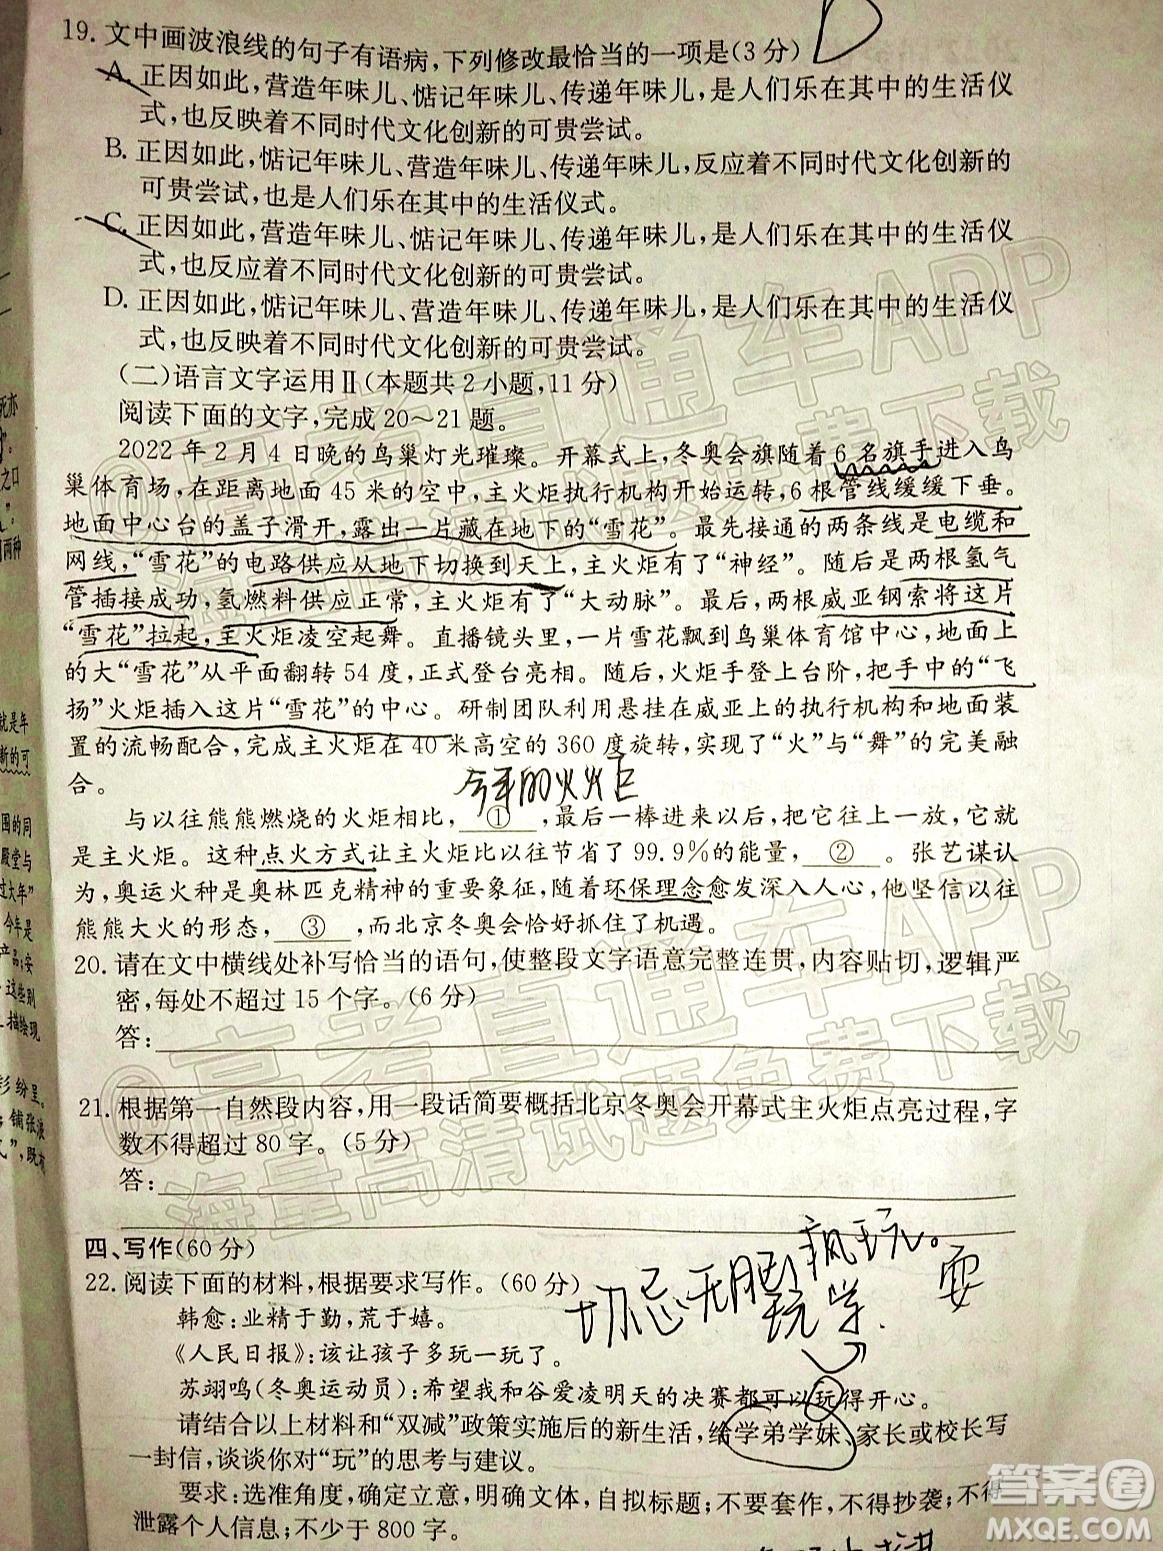 19. 文中画波浪线的句子有语病,下列修改最恰当的一项是(3分) D
A. 正因如此,营造年味儿、惦记年味儿、传递年味儿,是人们乐在其中的生活仪
式,也反映着不同时代文化创新的可贵尝试。
B. 正因如此,惦记年味儿、营造年味儿、传递年味儿,反应着不同时代文化创新的
可贵尝试,也是人们乐在其中的生活仪式。
C. 正因如此,营造年味儿、惦记年味儿、传递年味儿,是人们乐在其中的生活仪
式,也反应着不同时代文化创新的可贵尝试。
D. 正因如此,惦记年味儿、营造年味儿、传递年味儿,是人们乐在其中的生活仪
式,也反映着不同时代文化创新的可贵尝试。
(二)语言文字运用Ⅱ(本题共2小题,11分)
阅读下面的文字,完成20～21题。
2022年2月4日晚的鸟巢灯光璀璨。开幕式上,冬奥会旗随着6名旗手进入鸟
巢体育场,在距离地面45米的空中,主火炬执行机构开始运转,6根管线缓缓下垂。
地面中心台的盖子滑开,露出一片藏在地下的“雪花”。最先接通的两条线是电缆和
网线,“雪花”的电路供应从地下切换到天上,主火炬有了“神经”。随后是两根氢气
管插接成功,氢燃料供应正常,主火炬有了“大动脉”。最后,两根威亚钢索将这片
“雪花”拉起,主火炬凌空起舞。直播镜头里,一片雪花飘到鸟巢体育馆中心,地面上
的大“雪花”从平面翻转54度,正式登台亮相。随后,火炬手登上台阶,把手中的“飞
扬”火炬插入这片“雪花”的中心。研制团队利用悬挂在威亚上的执行机构和地面装
置的流畅配合,完成主火炬在40米高空的360度旋转,实现了“火”与“舞”的完美融
合。
今年的火炬
与以往熊熊燃烧的火炬相比, ① ,最后一棒进来以后,把它放在那里,它就
是主火炬。这种点火方式让主火炬比以往节省了99.9%的能量, ② 。张艺谋认
为,奥运火种是奥林匹克精神的重要象征,随着环保理念愈发深入人心,他坚信以往
熊熊大火的形态, ③ ,而北京冬奥会恰好抓住了机遇。
20. 请在文中横线处补写恰当的语句,使整段文字语意完整连贯,内容贴切,逻辑严
密,每处不超过15个字。(6分)
答:
21. 根据第一自然段内容,用一段话简要概括北京冬奥会开幕式主火炬点亮过程,字
数不得超过80字。(5分)
答:
四、写作(60分)
疯玩。
22. 阅读下面的材料,根据要求写作。(60分)
切忌无脑
玩学
要
韩愈:业精于勤,荒于嬉。
《人民日报》:该让孩子多玩一玩了。
苏翊鸣(冬奥运动员):希望我和谷爱凌明天的决赛都可以玩得开心。
请结合以上材料和“双减”政策实施后的新生活,给学弟学妹、家长或校长写
一封信,谈谈你对“玩”的思考与建议。
要求:选准角度,确定立意,明确文体,自拟标题;不要套作,不得抄袭;不得
泄露个人信息;不少于800字。
@高考直通车APP
海量高清试题免费下载
@高考直通车APP
海量高清试题免费下载
答案圈
MXQE.COM